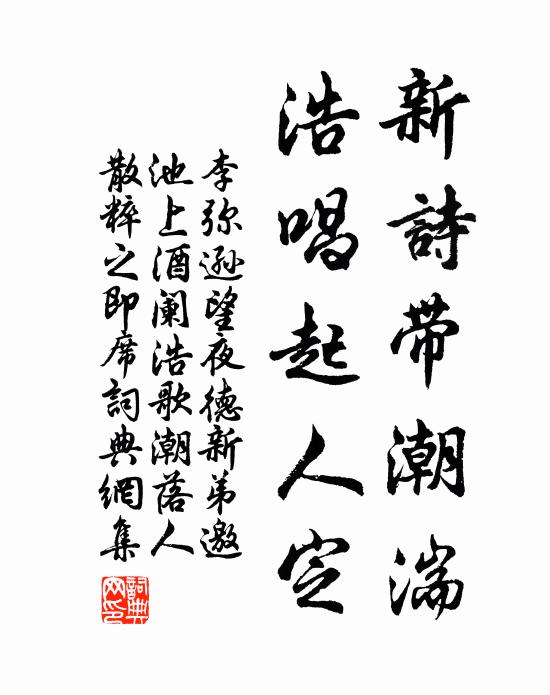 新詩帶潮湍
浩唱起人定
李弥遜望夜德新弟邀
池上酒闌浩歌潮落人
散粹之即席詞典網集
詞典
网印